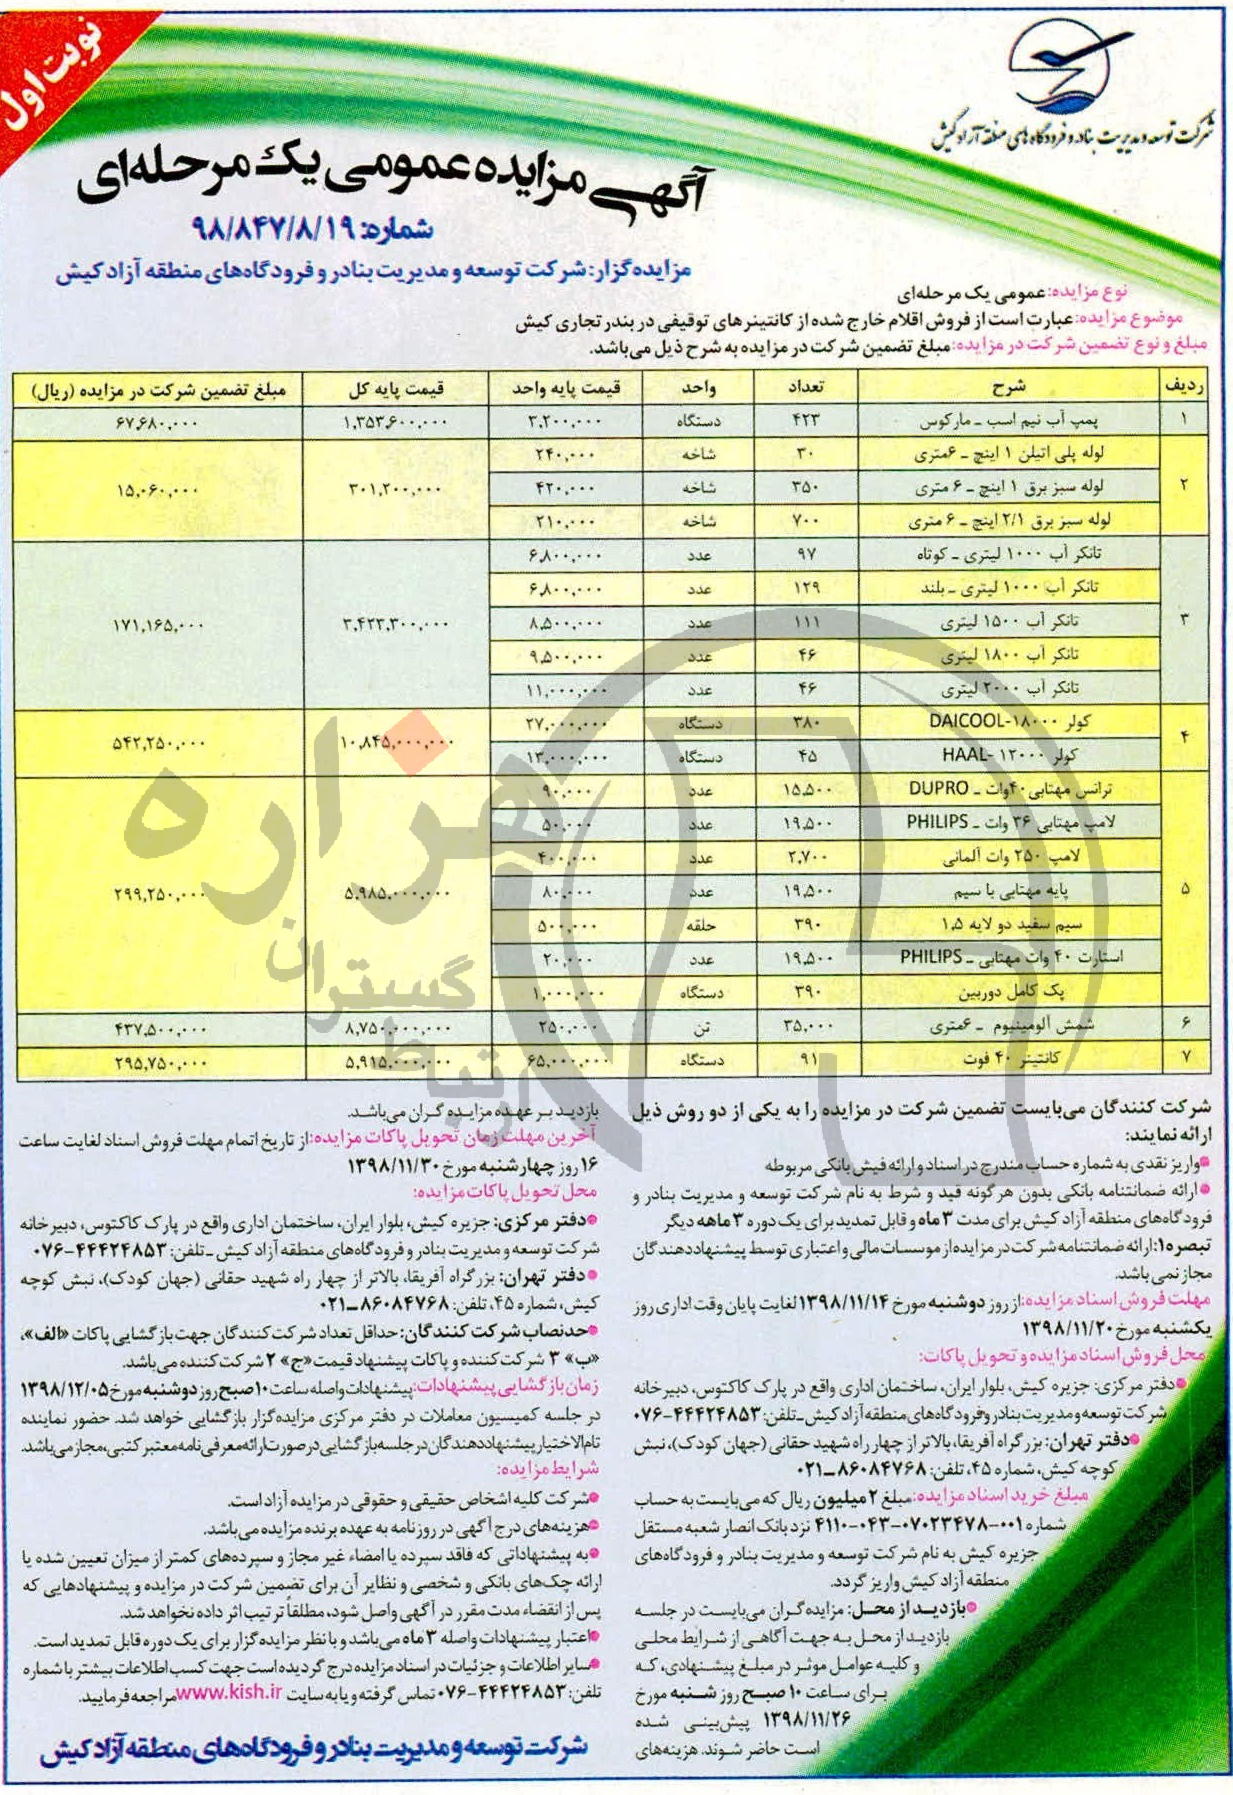 نوبت اول
شرکت توسعه و مدیریت بنادر و فرودگاه‌های منطقه آزاد کیش
آگهی مزایده عمومی یک مرحله‌ای
شماره: ۹۸/۸۴۷/۸/۱۹
مزایده‌گزار: شرکت توسعه و مدیریت بنادر و فرودگاه‌های منطقه آزاد کیش
نوع مزایده: عمومی یک مرحله‌ای
موضوع مزایده: عبارت است از فروش اقلام خارج شده از کانتینرهای توقیفی در بندر تجاری کیش
مبلغ و نوع تضمین شرکت در مزایده: مبلغ تضمین شرکت در مزایده به شرح ذیل می‌باشد.
ردیف شرح تعداد واحد قیمت پایه واحد قیمت پایه کل مبلغ تضمین شرکت در مزایده (ریال)
۱ پمپ آب نیم اسب ـ مارکوس ۴۲۳ دستگاه ۳,۲۰۰,۰۰۰ ۱,۳۵۳,۶۰۰,۰۰۰ ۶۷,۶۸۰,۰۰۰
لوله پلی اتیلن ۱ اینچ ـ ۶متری ۳۰ شاخه ۲۴۰,۰۰۰
۲ لوله سبز برق ۱ اینچ ـ ۶ متری ۳۵۰ شاخه ۴۲۰,۰۰۰ ۳۰۱,۲۰۰,۰۰۰ ۱۵,۰۶۰,۰۰۰
لوله سبز برق ۲/۱ اینچ ـ ۶ متری ۷۰۰ شاخه ۲۱۰,۰۰۰
تانکر آب ۱۰۰۰ لیتری ـ کوتاه ۹۷ عدد ۶,۸۰۰,۰۰۰
تانکر آب ۱۰۰۰ لیتری ـ بلند ۱۲۹ عدد ۶,۸۰۰,۰۰۰
۳ تانکر آب ۱۵۰۰ لیتری ۱۱۱ عدد ۸,۵۰۰,۰۰۰ ۳,۴۲۳,۳۰۰,۰۰۰ ۱۷۱,۱۶۵,۰۰۰
تانکر آب ۱۸۰۰ لیتری ۴۶ عدد ۹,۵۰۰,۰۰۰
تانکر آب ۲۰۰۰ لیتری ۴۶ عدد ۱۱,۰۰۰,۰۰۰
۴ کولر DAICOOL-۱۸۰۰۰ ۳۸۰ دستگاه ۲۷,۰۰۰,۰۰۰ ۱۰,۸۴۵,۰۰۰,۰۰۰ ۵۴۲,۲۵۰,۰۰۰
کولر HAAL- ۱۲۰۰۰ ۴۵ دستگاه ۱۳,۰۰۰,۰۰۰
ترانس مهتابی ۴۰وات ـ DUPRO ۱۵,۵۰۰ عدد ۹۰,۰۰۰
لامپ مهتابی ۳۶ وات ـ PHILIPS ۱۹,۵۰۰ عدد ۵۰,۰۰۰
لامپ ۲۵۰ وات آلمانی ۲,۷۰۰ عدد ۴۰۰,۰۰۰
۵ پایه مهتابی با سیم ۱۹,۵۰۰ عدد ۸۰,۰۰۰ ۵,۹۸۵,۰۰۰,۰۰۰ ۲۹۹,۲۵۰,۰۰۰
سیم سفید دو لایه ۱,۵ ۳۹۰ حلقه ۵۰۰,۰۰۰
استارت ۴۰ وات مهتابی ـ PHILIPS ۱۹,۵۰۰ عدد ۲۰,۰۰۰
پک کامل دوربین ۳۹۰ دستگاه ۱,۰۰۰,۰۰۰
۶ شمش آلومینیوم ـ ۶متری ۳۵,۰۰۰ تن ۲۵۰,۰۰۰ ۸,۷۵۰,۰۰۰,۰۰۰ ۴۳۷,۵۰۰,۰۰۰
۷ کانتینر ۴۰ فوت ۹۱ دستگاه ۶۵,۰۰۰,۰۰۰ ۵,۹۱۵,۰۰۰,۰۰۰ ۲۹۵,۷۵۰,۰۰۰
هزاره
گستران
ارتباط
شرکت کنندگان می‌بایست تضمین شرکت در مزایده را به یکی از دو روش ذیل
ارائه نمایند:
●واریز نقدی به شماره حساب مندرج در اسناد و ارائه فیش بانکی مربوطه
●ارائه ضمانتنامه بانکی بدون هرگونه قید و شرط به نام شرکت توسعه و مدیریت بنادر و
فرودگاه‌های منطقه آزاد کیش برای مدت ۳ ماه و قابل تمدید برای یک دوره ۳ ماهه دیگر
تبصره۱: ارائه ضمانتنامه شرکت در مزایده از موسسات مالی و اعتباری توسط پیشنهاد دهندگان
مجاز نمی باشد.
مهلت فروش اسناد مزایده: از روز دوشنبه مورخ ۱۳۹۸/۱۱/۱۴ لغایت پایان وقت اداری روز
یکشنبه مورخ ۱۳۹۸/۱۱/۲۰
محل فروش اسناد مزایده و تحویل پاکات:
●دفتر مرکزی: جزیره کیش، بلوار ایران، ساختمان اداری واقع در پارک کاکتوس، دبیرخانه
شرکت توسعه و مدیریت بنادر و فرودگاه‌های منطقه آزاد کیش ـ تلفن: ۴۴۴۲۴۸۵۳-۰۷۶
●دفتر تهران: بزرگراه آفریقا، بالاتر از چهار راه شهید حقانی (جهان کودک)، نبش
کوچه کیش، شماره ۴۵، تلفن: ۸۶۰۸۴۷۶۸ـ۰۲۱
مبلغ خرید اسناد مزایده: مبلغ ۲ میلیون ریال که می‌بایست به حساب
شماره ۰۰۱-۰۷۰۲۳۴۷۸-۰۴۳-۴۱۱۰ نزد بانک انصار شعبه مستقل
جزیره کیش به نام شرکت توسعه و مدیریت بنادر و فرودگاه‌های
منطقه آزاد کیش واریز گردد.
●بازدید از محل: مزایده‌گران می‌بایست در جلسه
بازدید از محل به جهت آگاهی از شرایط محلی
و کلیه عوامل موثر در مبلغ پیشنهادی، که
برای ساعت ۱۰ صبح روز شنبه مورخ
۱۳۹۸/۱۱/۲۶ پیش‌بینی شده
است حاضر شوند. هزینه‌های
بازدید بر عهده مزایده گران می‌باشد.
آخرین مهلت زمان تحویل پاکات مزایده: از تاریخ اتمام مهلت فروش اسناد لغایت ساعت
۱۶ روز چهارشنبه مورخ ۱۳۹۸/۱۱/۳۰
محل تحویل پاکات مزایده:
●دفتر مرکزی: جزیره کیش، بلوار ایران، ساختمان اداری واقع در پارک کاکتوس، دبیرخانه
شرکت توسعه و مدیریت بنادر و فرودگاه‌های منطقه آزاد کیش ـ تلفن: ۴۴۴۲۴۸۵۳-۰۷۶
●دفتر تهران: بزرگراه آفریقا، بالاتر از چهار راه شهید حقانی (جهان کودک)، نبش کوچه
کیش، شماره ۴۵، تلفن: ۸۶۰۸۴۷۶۸ـ۰۲۱
●حدنصاب شرکت کنندگان: حداقل تعداد شرکت کنندگان جهت بازگشایی پاکات «الف»،
«ب» ۳ شرکت کننده و پاکات پیشنهاد قیمت «ج» ۲ شرکت کننده می باشد.
زمان بازگشایی پیشنهادات: پیشنهادات واصله ساعت ۱۰ صبح روز دوشنبه مورخ ۱۳۹۸/۱۲/۰۵
در جلسه کمیسیون معاملات در دفتر مرکزی مزایده‌گزار بازگشایی خواهد شد. حضور نماینده
تام‌الاختیار پیشنهاد دهندگان در جلسه بازگشایی در صورت ارائه معرفی نامه معتبر کتبی، مجاز می‌باشد.
شرایط مزایده:
●شرکت کلیه اشخاص حقیقی و حقوقی در مزایده آزاد است.
●هزینه‌های درج آگهی در روزنامه به عهده برنده مزایده می‌باشد.
●به پیشنهاداتی که فاقد سپرده یا امضاء غیر مجاز و سپرده‌های کمتر از میزان تعیین شده یا
ارائه چک‌های بانکی و شخصی و نظایر آن برای تضمین شرکت در مزایده و پیشنهادهایی که
پس از انقضاء مدت مقرر در آگهی واصل شود، مطلقاً ترتیب اثر داده نخواهد شد.
●اعتبار پیشنهادات واصله ۳ ماه می‌باشد و با نظر مزایده گزار برای یک دوره قابل تمدید است.
●سایر اطلاعات و جزئیات در اسناد مزایده درج گردیده است جهت کسب اطلاعات بیشتر با شماره
تلفن: ۴۴۴۲۴۸۵۳-۰۷۶ تماس گرفته و یا به سایت www.kish.ir مراجعه فرمایید.
شرکت توسعه و مدیریت بنادر و فرودگاه‌های منطقه آزاد کیش